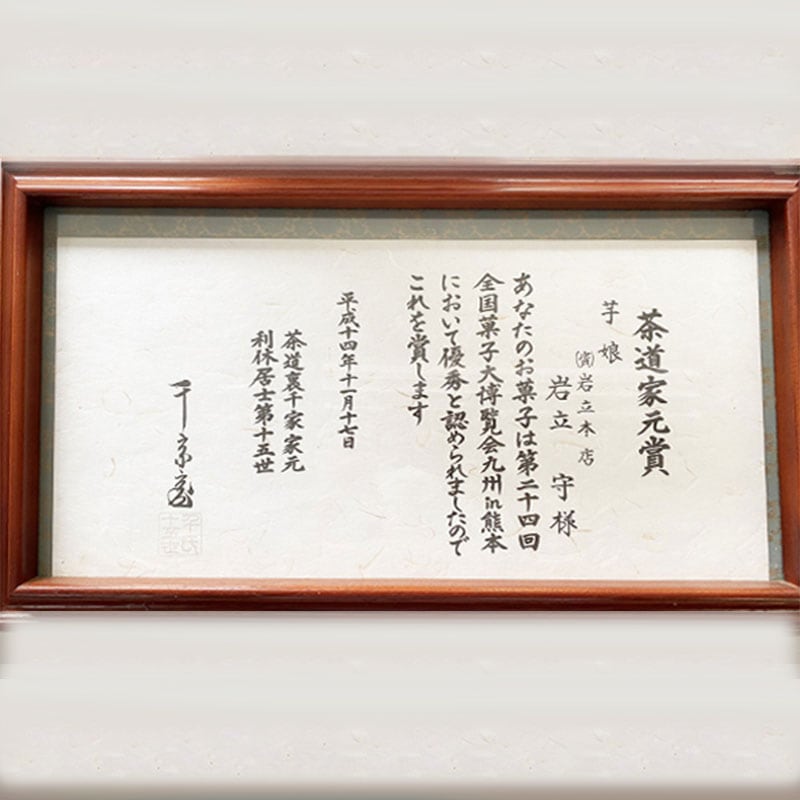 茶道家元賞
芋娘
㈲岩立本店
岩立 守様
あなたのお菓子は第二十四回
全国菓子大博覧会九州in熊本
において優秀と認められましたので
これを賞します
平成十四年十一月十七日
茶道裏千家家元
利休居士第十五世
千宗室